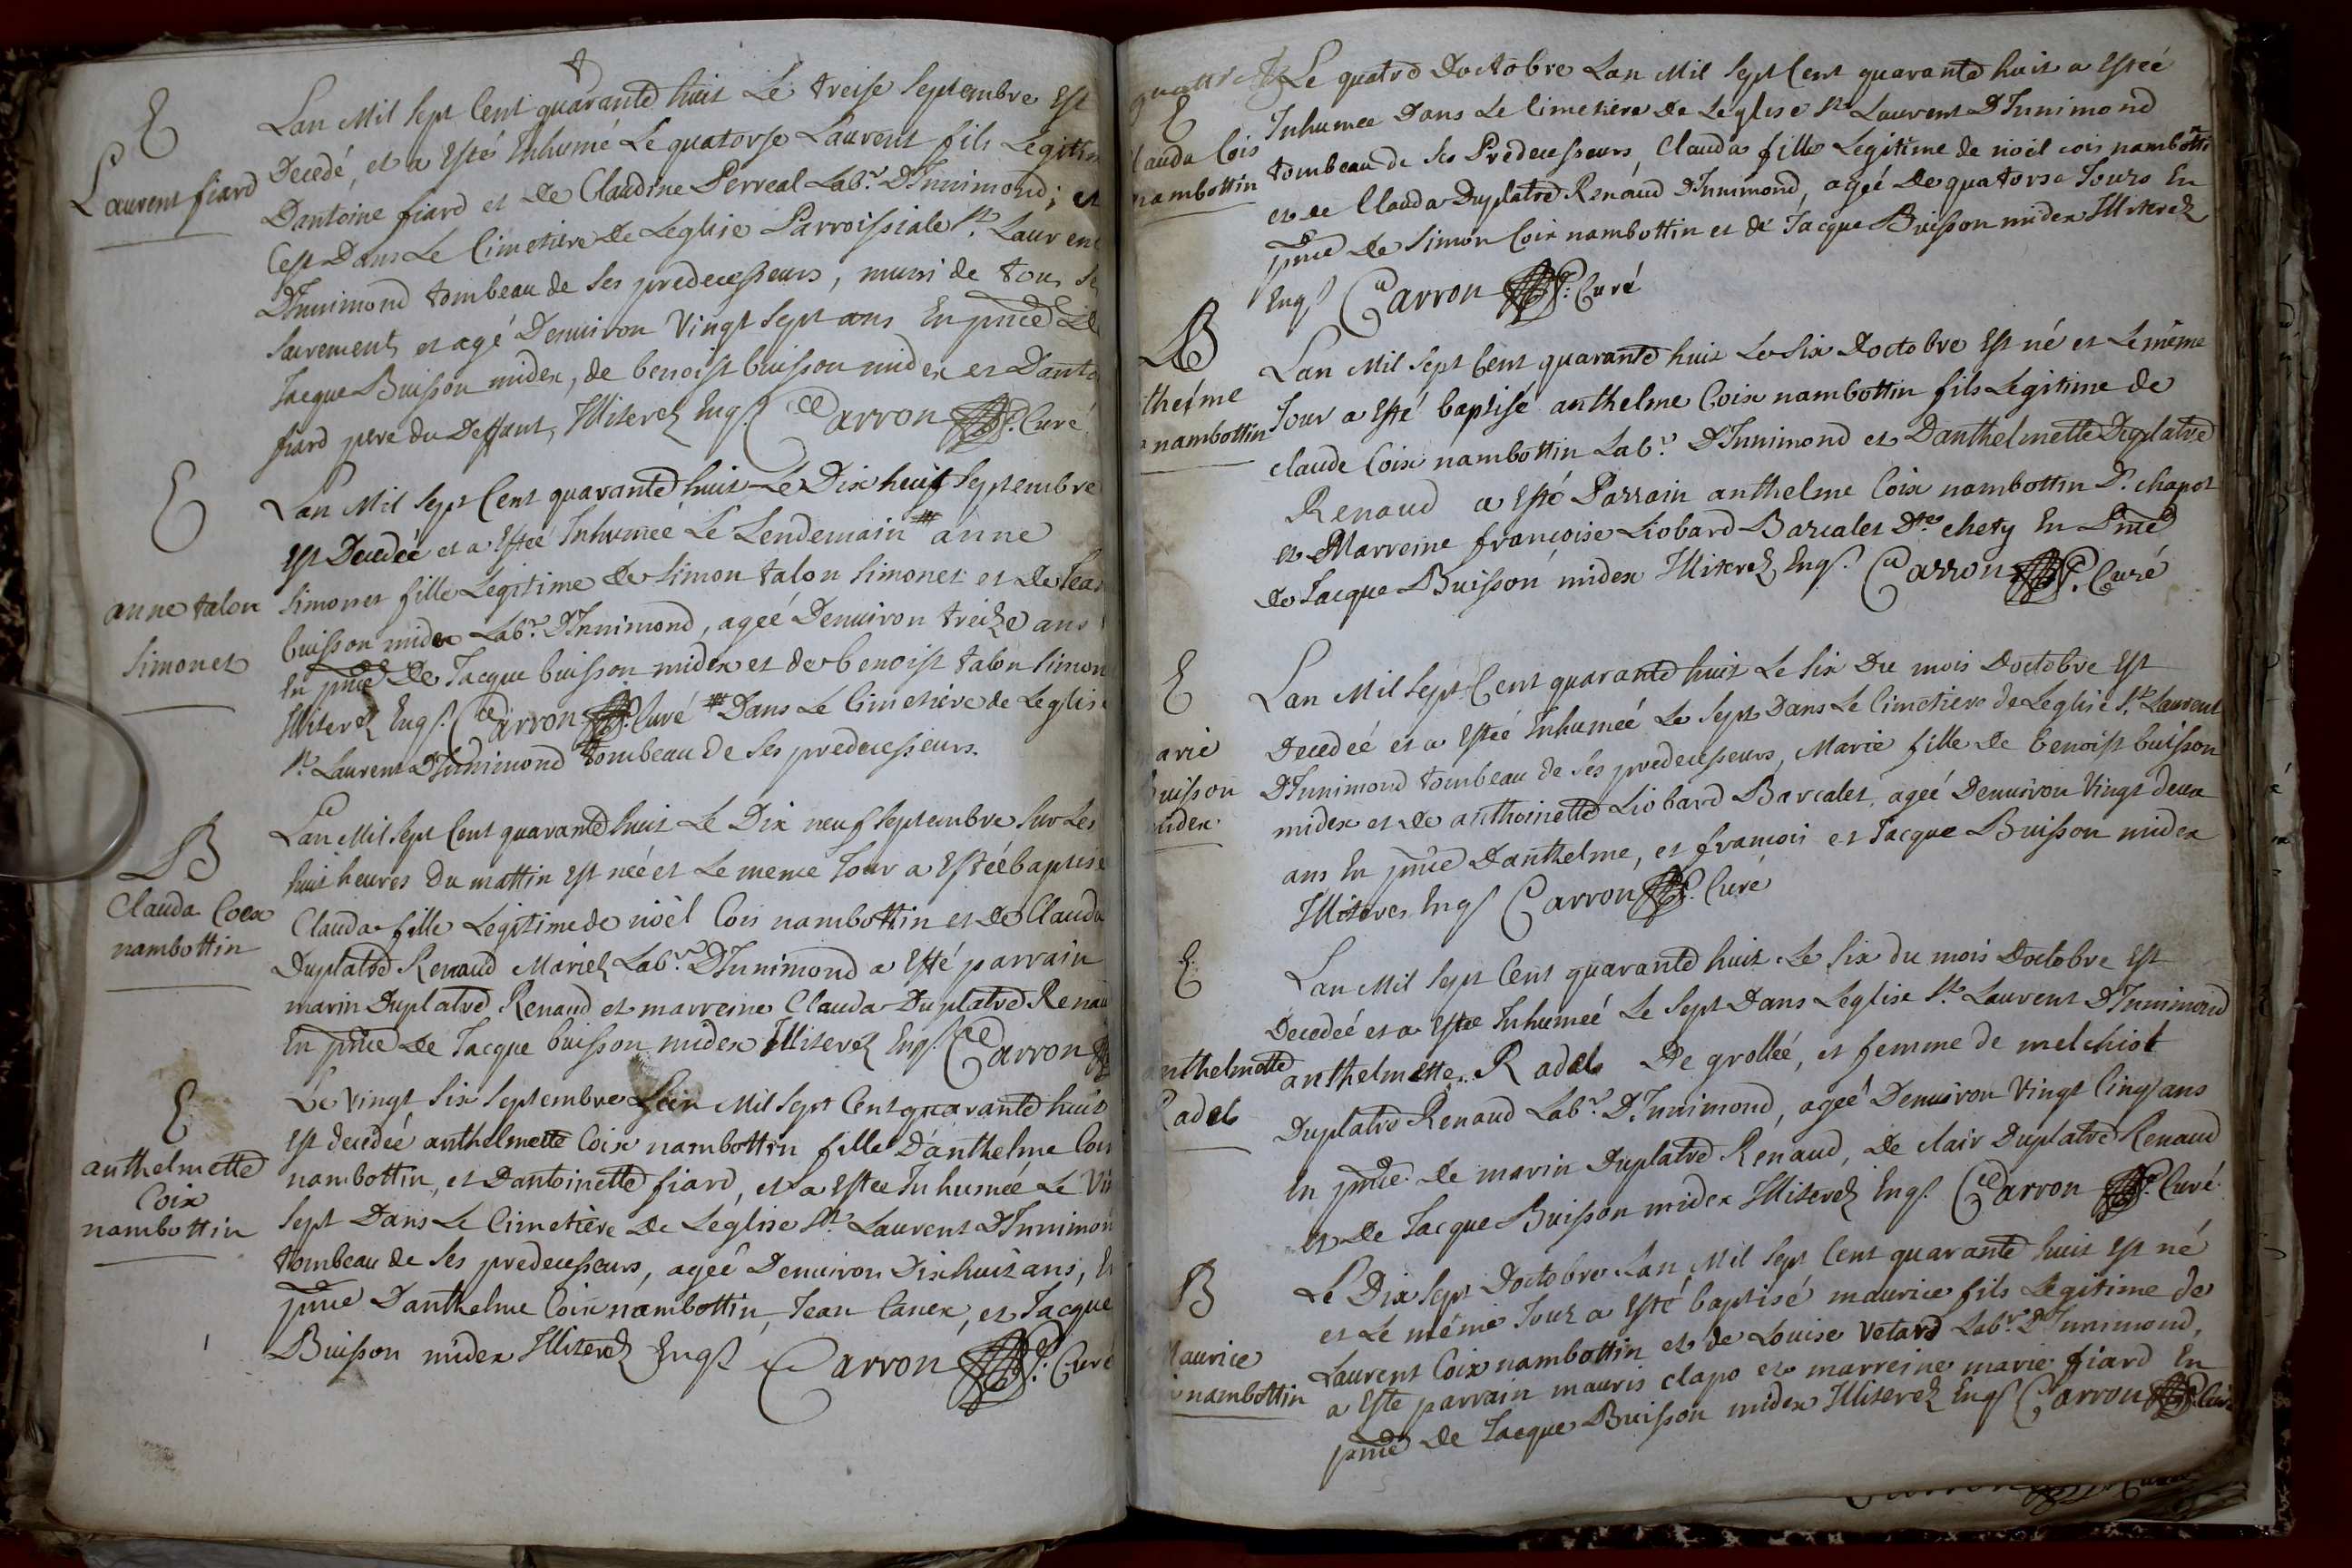 E
Laurent fiard
Lan Mil Sept Cent quarante huit Le treise Septembre Est
Decedé, et a Esté Inhumé Le quatorse Laurent fils Legitim
Dantoine fiard et de Claudine Perreal Labr. D'Innimond; et
Cest Dans Le Cimetière de Leglise Parroissiale St. Laurent
D'Innimond tombeau de ses predecesseurs, muni de tou, se
sacrements et agé Denuiron Vingt sept ans En pnce De
Jacque Buisson midex, de benoist buisson midex et Danto
fiard pere du Deffunt, Illiterez Enqs. Carron P. Curé
E
anne talon
Simonet
Lan Mil Sept Cent quarante huit Le Dix huit Septembre
Est Decedée et a Estée Inhumée Le Lendemain # anne
Simonet fille Legitime de Simon talon Simonet et de Jea
buisson midex Labr. D'Innimond, ageé Denuiron treize ans
En pnce De Jacque buisson midex et de benoist talon Simon
Illiterez Enqs. Carron P. Curé # Dans Le Cimetière de Leglise
St. Laurent D'Innimond tombeau de ses predecesseurs.
B
Clauda Coex
nambottin
Lan Mil Sept Cent quarante huit Le Dix neuf Septembre Sur Les
huit heures du mattin est née et Le meme Jour a Estée baptise
Clauda fille Legitime de noël Cois nambottin et de Clauda
Duplatre Renaud Mariez Labr. D'Innimond a Esté parrain
marin Duplatre Renaud et marreine Clauda Duplatre Renau
En pnce De Jacque buisson midex Illiterez Enqs. Carron
E
anthelmette
Coix
nambottin
Le Vingt Six Septembre Lan Mil Sept Cent quarante huit
Est decedeé anthelmette Coix nambottin fille D'anthelme Coix
nambottin, et Dantoinette fiard, et a Estee Inhumeé Le Vin
Sept Dans Le Cimetière De Léglise St. Laurent D'Innimon
tombeau de ses predecesseurs, ageé Denuiron Dixhuit ans, En
pnce D'anthelme Coix nambottin, Jean Canex, et Jacque
Buisson midex Illiterez Enqs Carron P. Curé
E
Clauda Cois
nambottin
Le quatre Doctobre Lan Mil Sept Cent quarante huit a Esteé
Inhumee Dans Le Cimetière De Léglise St. Laurent D'Innimond
tombeau de ses Predecesseurs, Clauda fille Legitime de noël cois nambottin
et de Clauda Duplatre Renaud D'Innimond, ageé De quatorse Jours En
pnce De Simon Coix nambottin et de Jacque Buisson midex Illiterez
Enqs Carron P. Curé
B
thelme
nambottin
Lan Mil Sept Cent quarante huit Le Six Doctobre Est né et Le même
Jour a Esté baptisé anthelme Coix nambottin fils Legitime de
claude Coix nambottin Labr. D'Innimond et Danthelmette Duplatre
Renaud a Esté Parrain anthelme Coix nambottin Dt. chapot
et Marreine françoise Liobard Barcalet Dte. chety En Pnce
de Jacque Buisson midex Illiterez Enqs. Carron P. Curé
E
arie
Buisson
midex
Lan Mil Sept Cent quarante huit Le Six Du mois Doctobre Est
Decedeé et a Estée Inhumeé Le Sept Dans Le Cimetiere de Leglise St. Laurent
D'Innimond tombeau de ses predecesseurs, Marie fille de benoist buisson
midex et de anthoinette Liobard Barcalet, ageé Denuiron Vingt deux
ans En pnce D'anthelme, et francois et Jacque Buisson midex
Illiteres Enqs Carron P. Curé
E
anthelmette
Radel
Lan Mil Sept Cent quarante huit Le Six du mois Doctobre Est
Decedeé et a Estee Inhumeé Le Sept Dans Leglise St. Laurent D'Innimond
anthelmette Radel De grolleé, et femme de melchiot
Duplatre Renaud Labr. D'Innimond, ageé Denuiron Vingt Cinq ans
En pnce. De marin Duplatre Renaud, De clair Duplatre Renaud
et De Jacque Buisson midex Illiterez Enqs. Carron P. Curé
B
aurice
nambottin
Le Dix Sept Doctobre Lan Mil Sept Cent quarante huit Est né
et Le même Jour a Esté baptisé maurice fils Legitime de
Laurent Coix nambottin et de Louise Vetard Labr. D'Innimond,
a Este parrain mauris clapo et marreine marie fiard En
pnce De Jacque Buisson midex Illiterez Enqs Carron P. Curé